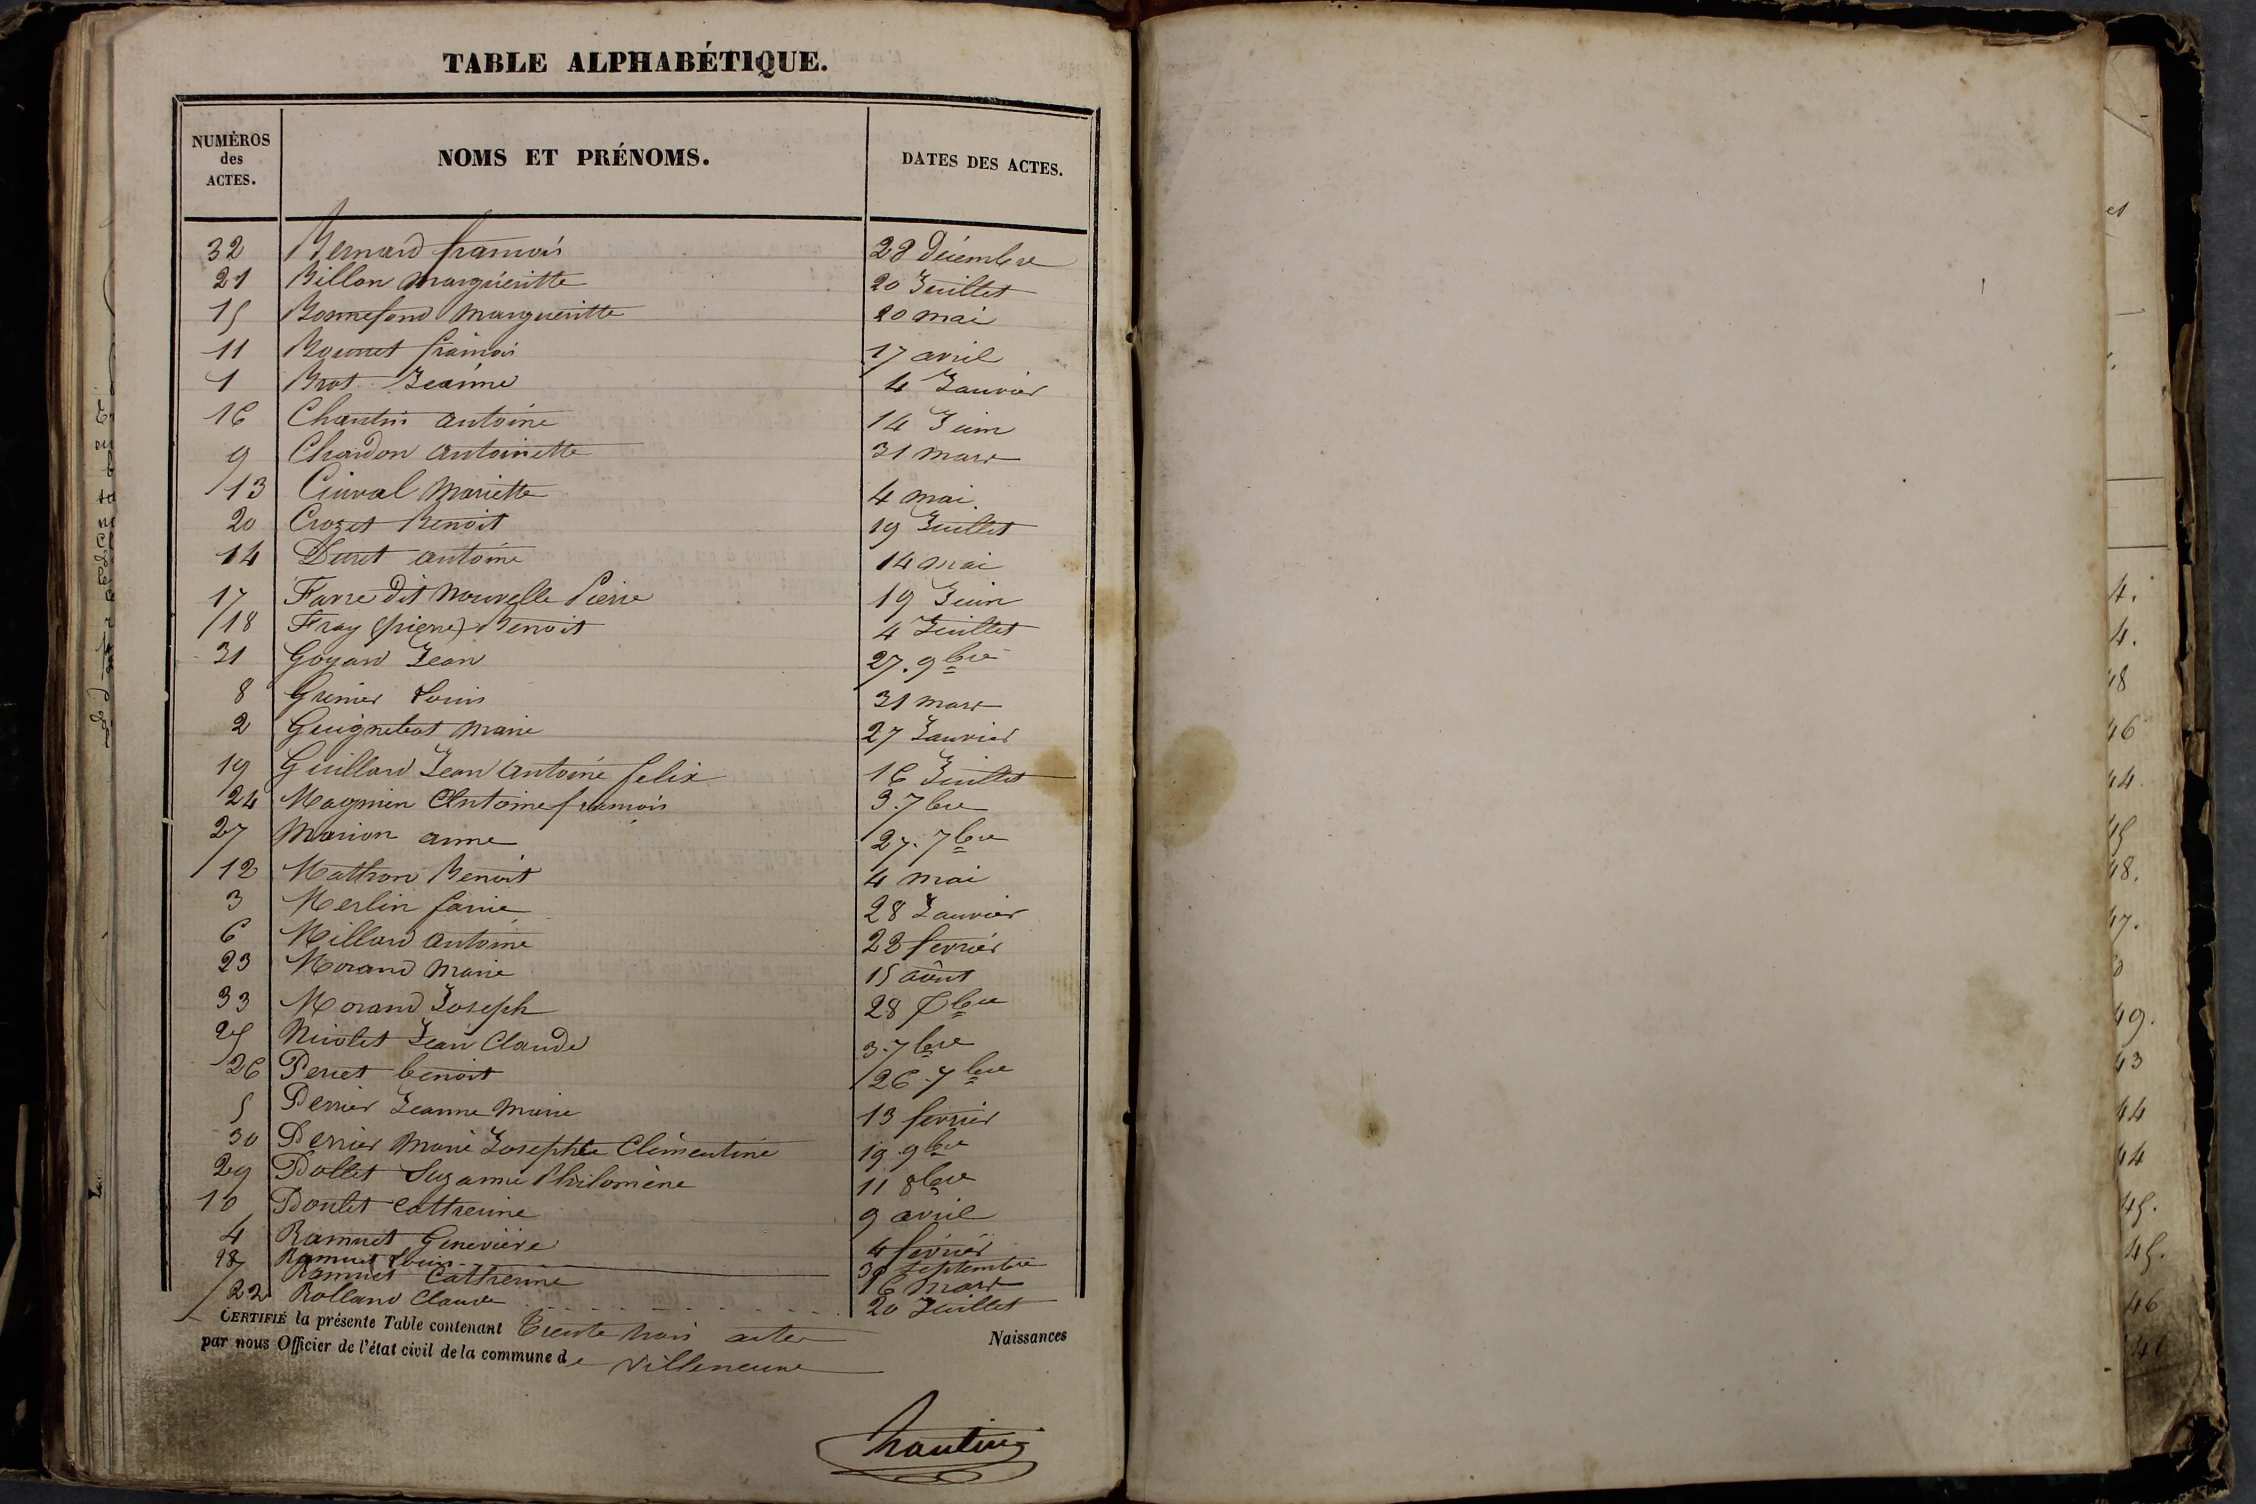 TABLE ALPHABÉTIQUE.
NUMÉROS des ACTES. NOMS ET PRÉNOMS. DATES DES ACTES.
32 Bernard francois 28 Décembre
21 Billon Marguéritte 20 Juillet
15 Bonnefond Margueritte 20 mai
11 Bounet francois 17 avril
1 Brot Jeanne 4 Janvier
16 Chantin antoine 14 Juin
9 Chardon antoinette 31 mars
13 Cinval Mariette 4 mai
20 Crozet Benoit 19 Juillet
14 Duret antoine 14 mai
17 Farre dit nouvelle Pierre 19 Juin
18 Fray (pierre) Benoit 4 Juillet
31 Goyard Jean 27. 9bre
8 Grenier Louis 31 mars
2 Guignebot Marie 27 Janvier
19 Guillard Jean antoine felix 16 Juillet
24 Magnien Antoine francois 3. 7bre
27 Marion anne 27. 7bre
12 Mathon Benoit 4 mai
3 Merlin fanie 28 Janvier
6 Millard antoine 23 fevrier
23 Morand Marie 15 août
33 Morand Joseph 28 Xbre
25 Nicolet Jean Claude 3. 7bre
26 Perret benoit 26. 7bre
5 Perrier Jeanne Marie 13 fevrier
30 Perrier Marie Josephte Clémentine 19. 9bre
29 Pollet Suzanne Philomène 11 8bre
10 Poulet Catherine 9 avril
4 Ramuet Geneviève 4 fevrier
28 Ramuet Louis 30 septembre
7 Ramuet Catherine 16 mars
22 Rolland Claude 20 Juillet
CERTIFIÉ la présente Table contenant Trente trois actes Naissances
par nous Officier de l'état civil de la commune de Villeneuve
Chantin